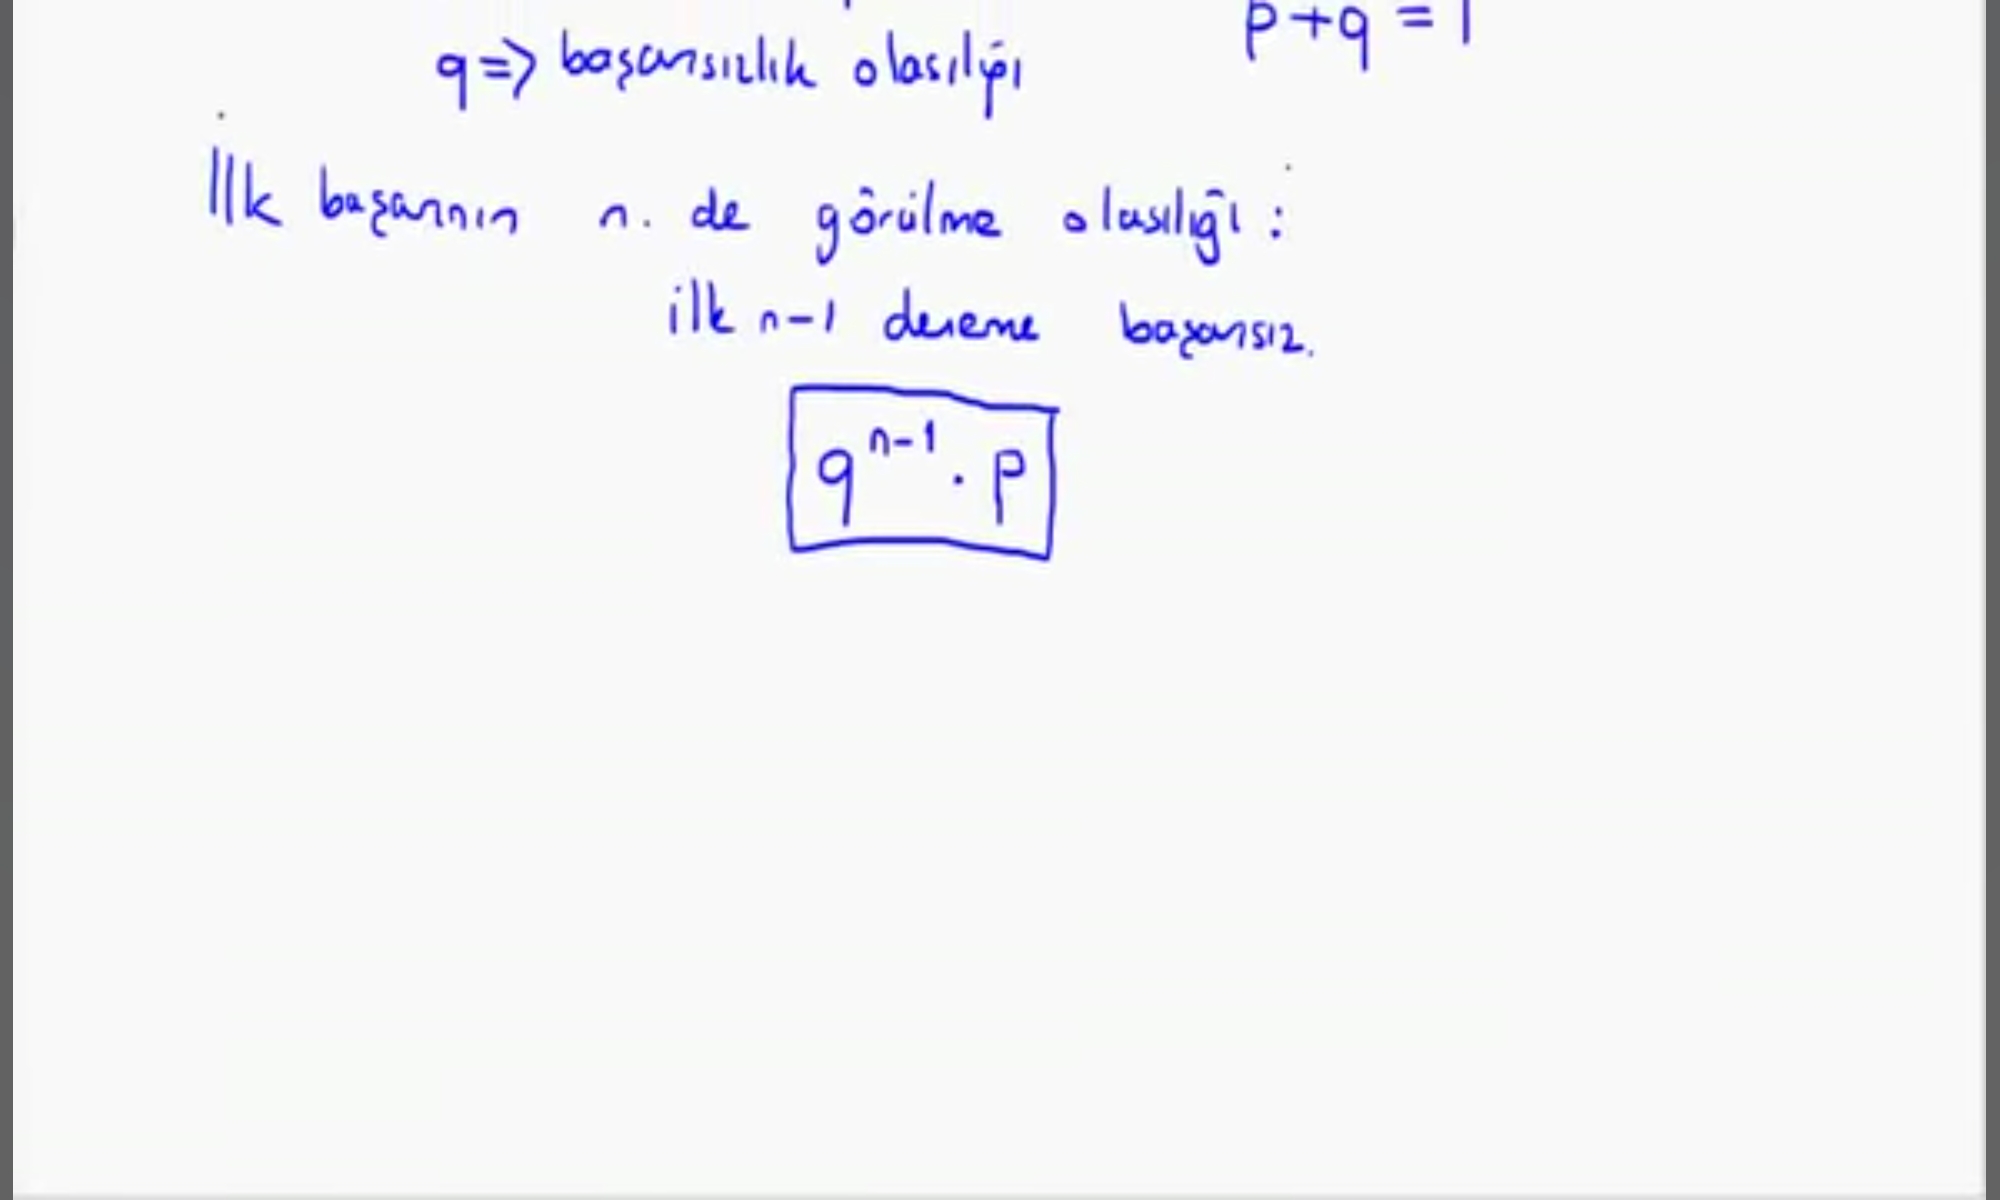 p+q = 1
q => başarısızlık olasılığı
İlk başarının n. de görülme olasılığı :
ilk n-1 deneme başarısız.
q^{n-1} . p